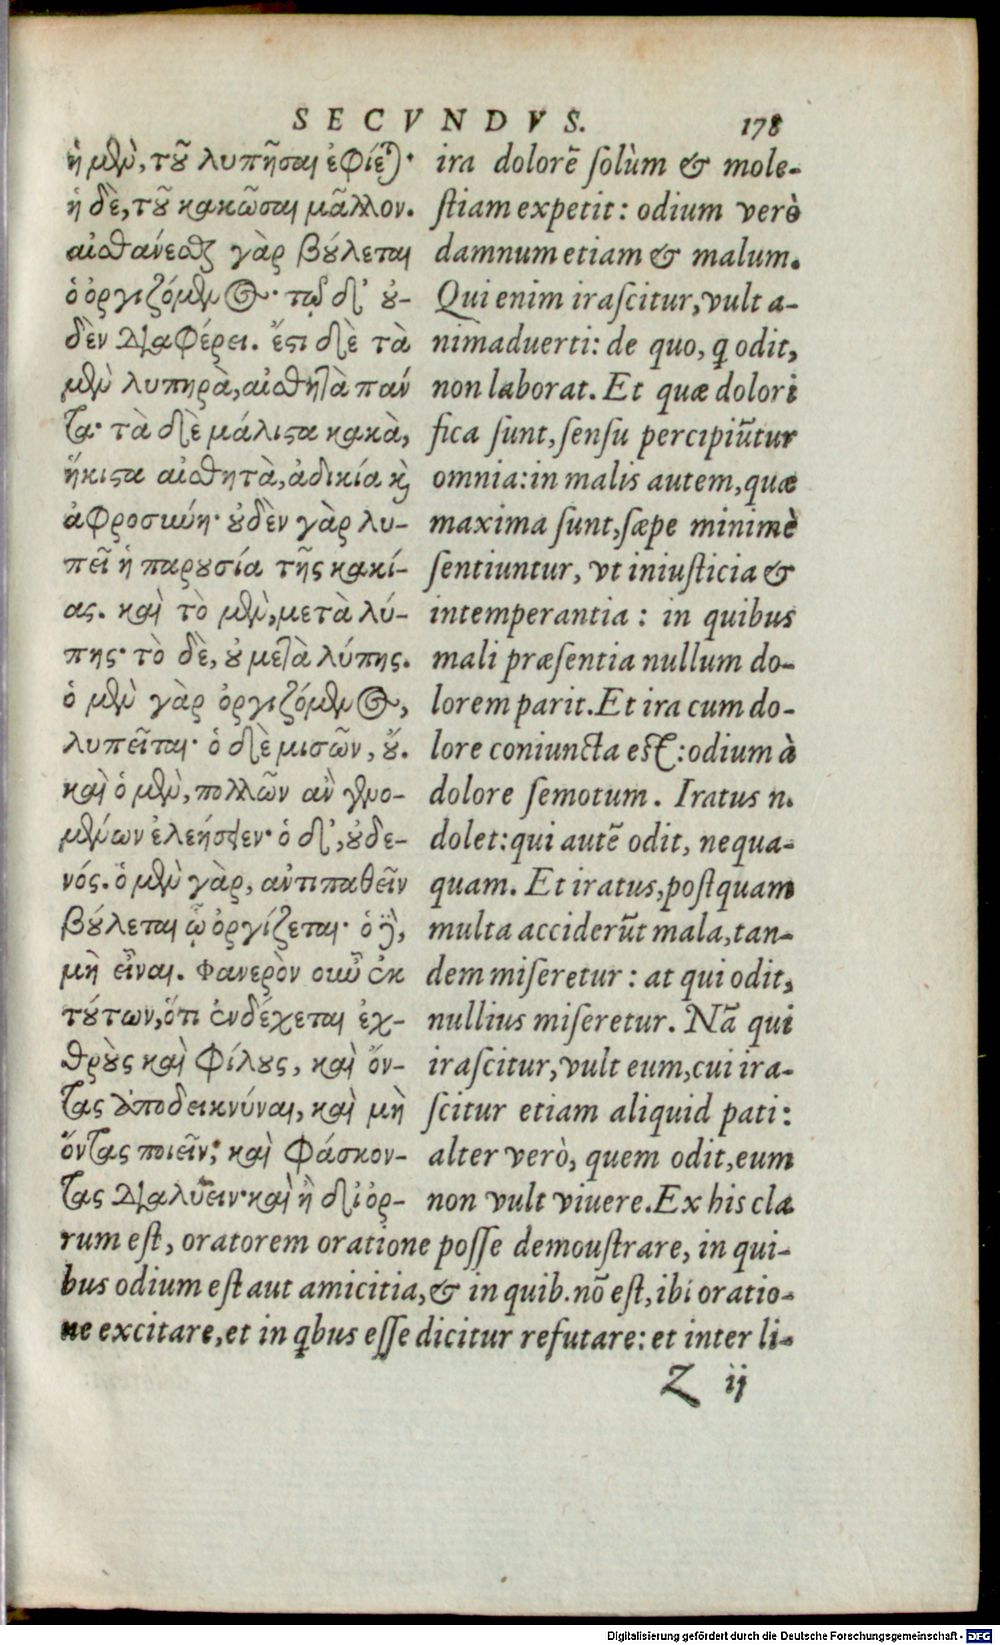 SECVNDVS. 178
ἡ μὲν, τοῦ λυπῆσαι ἐφίεται·
ἡ δὲ, τοῦ κακῶσαι μᾶλλον.
αἰσθάνεσθαι γὰρ βούλεται
ὁ ὀργιζόμενος· τῷ δ' οὐ-
δὲν διαφέρει. ἔστι δὲ τὰ
μὲν λυπηρὰ, αἰσθητὰ πάν
τα· τὰ δὲ μάλιστα κακὰ,
ἥκιστα αἰσθητὰ, ἀδικία καὶ
ἀφροσύνη· οὐδὲν γὰρ λυ-
πεῖ ἡ παρουσία τῆς κακί-
ας. καὶ τὸ μὲν, μετὰ λύ-
πης· τὸ δὲ, οὐ μετὰ λύπης.
ὁ μὲν γὰρ ὀργιζόμενος,
λυπεῖται· ὁ δὲ μισῶν, οὔ.
καὶ ὁ μὲν, πολλῶν ἂν γενο-
μένων ἐλεήσειεν· ὁ δ', οὐδε-
νός. ὁ μὲν γὰρ, ἀντιπαθεῖν
βούλεται ᾧ ὀργίζεται· ὁ δὲ,
μὴ εἶναι. Φανερὸν οὖν ἐκ
τούτων, ὅτι ἐνδέχεται ἐχ-
θροὺς καὶ φίλους, καὶ ὄν-
τας ἀποδεικνύναι, καὶ μὴ
ὄντας ποιεῖν· καὶ φάσκον-
τας διαλύειν· καὶ ἢ δι' ὀρ-
ira dolorē ſolùm & mole-
ſtiam expetit: odium verò
damnum etiam & malum.
Qui enim iraſcitur, vult a-
nimaduerti: de quo, ꝗ odit,
non laborat. Et quæ dolori
fica ſunt, ſenſu percipiūtur
omnia: in malis autem, quæ
maxima ſunt, ſæpe minimè
ſentiuntur, vt iniuſticia &
intemperantia : in quibus
mali præſentia nullum do-
lorem parit. Et ira cum do-
lore coniuncta eſt: odium à
dolore ſemotum. Iratus n.
dolet: qui autē odit, nequa-
quam. Et iratus, poſtquam
multa acciderūt mala, tan-
dem miſeretur : at qui odit,
nullius miſeretur. Nā qui
iraſcitur, vult eum, cui ira-
ſcitur etiam aliquid pati:
alter verò, quem odit, eum
non vult viuere. Ex his cla
rum eſt, oratorem oratione poſſe demouſtrare, in qui-
bus odium eſt aut amicitia, & in quib. nō eſt, ibi oratio-
ne excitare, et in ꝗbus eſſe dicitur refutare: et inter li-
Z ij
Digitalisierung gefördert durch die Deutsche Forschungsgemeinschaft - DFG